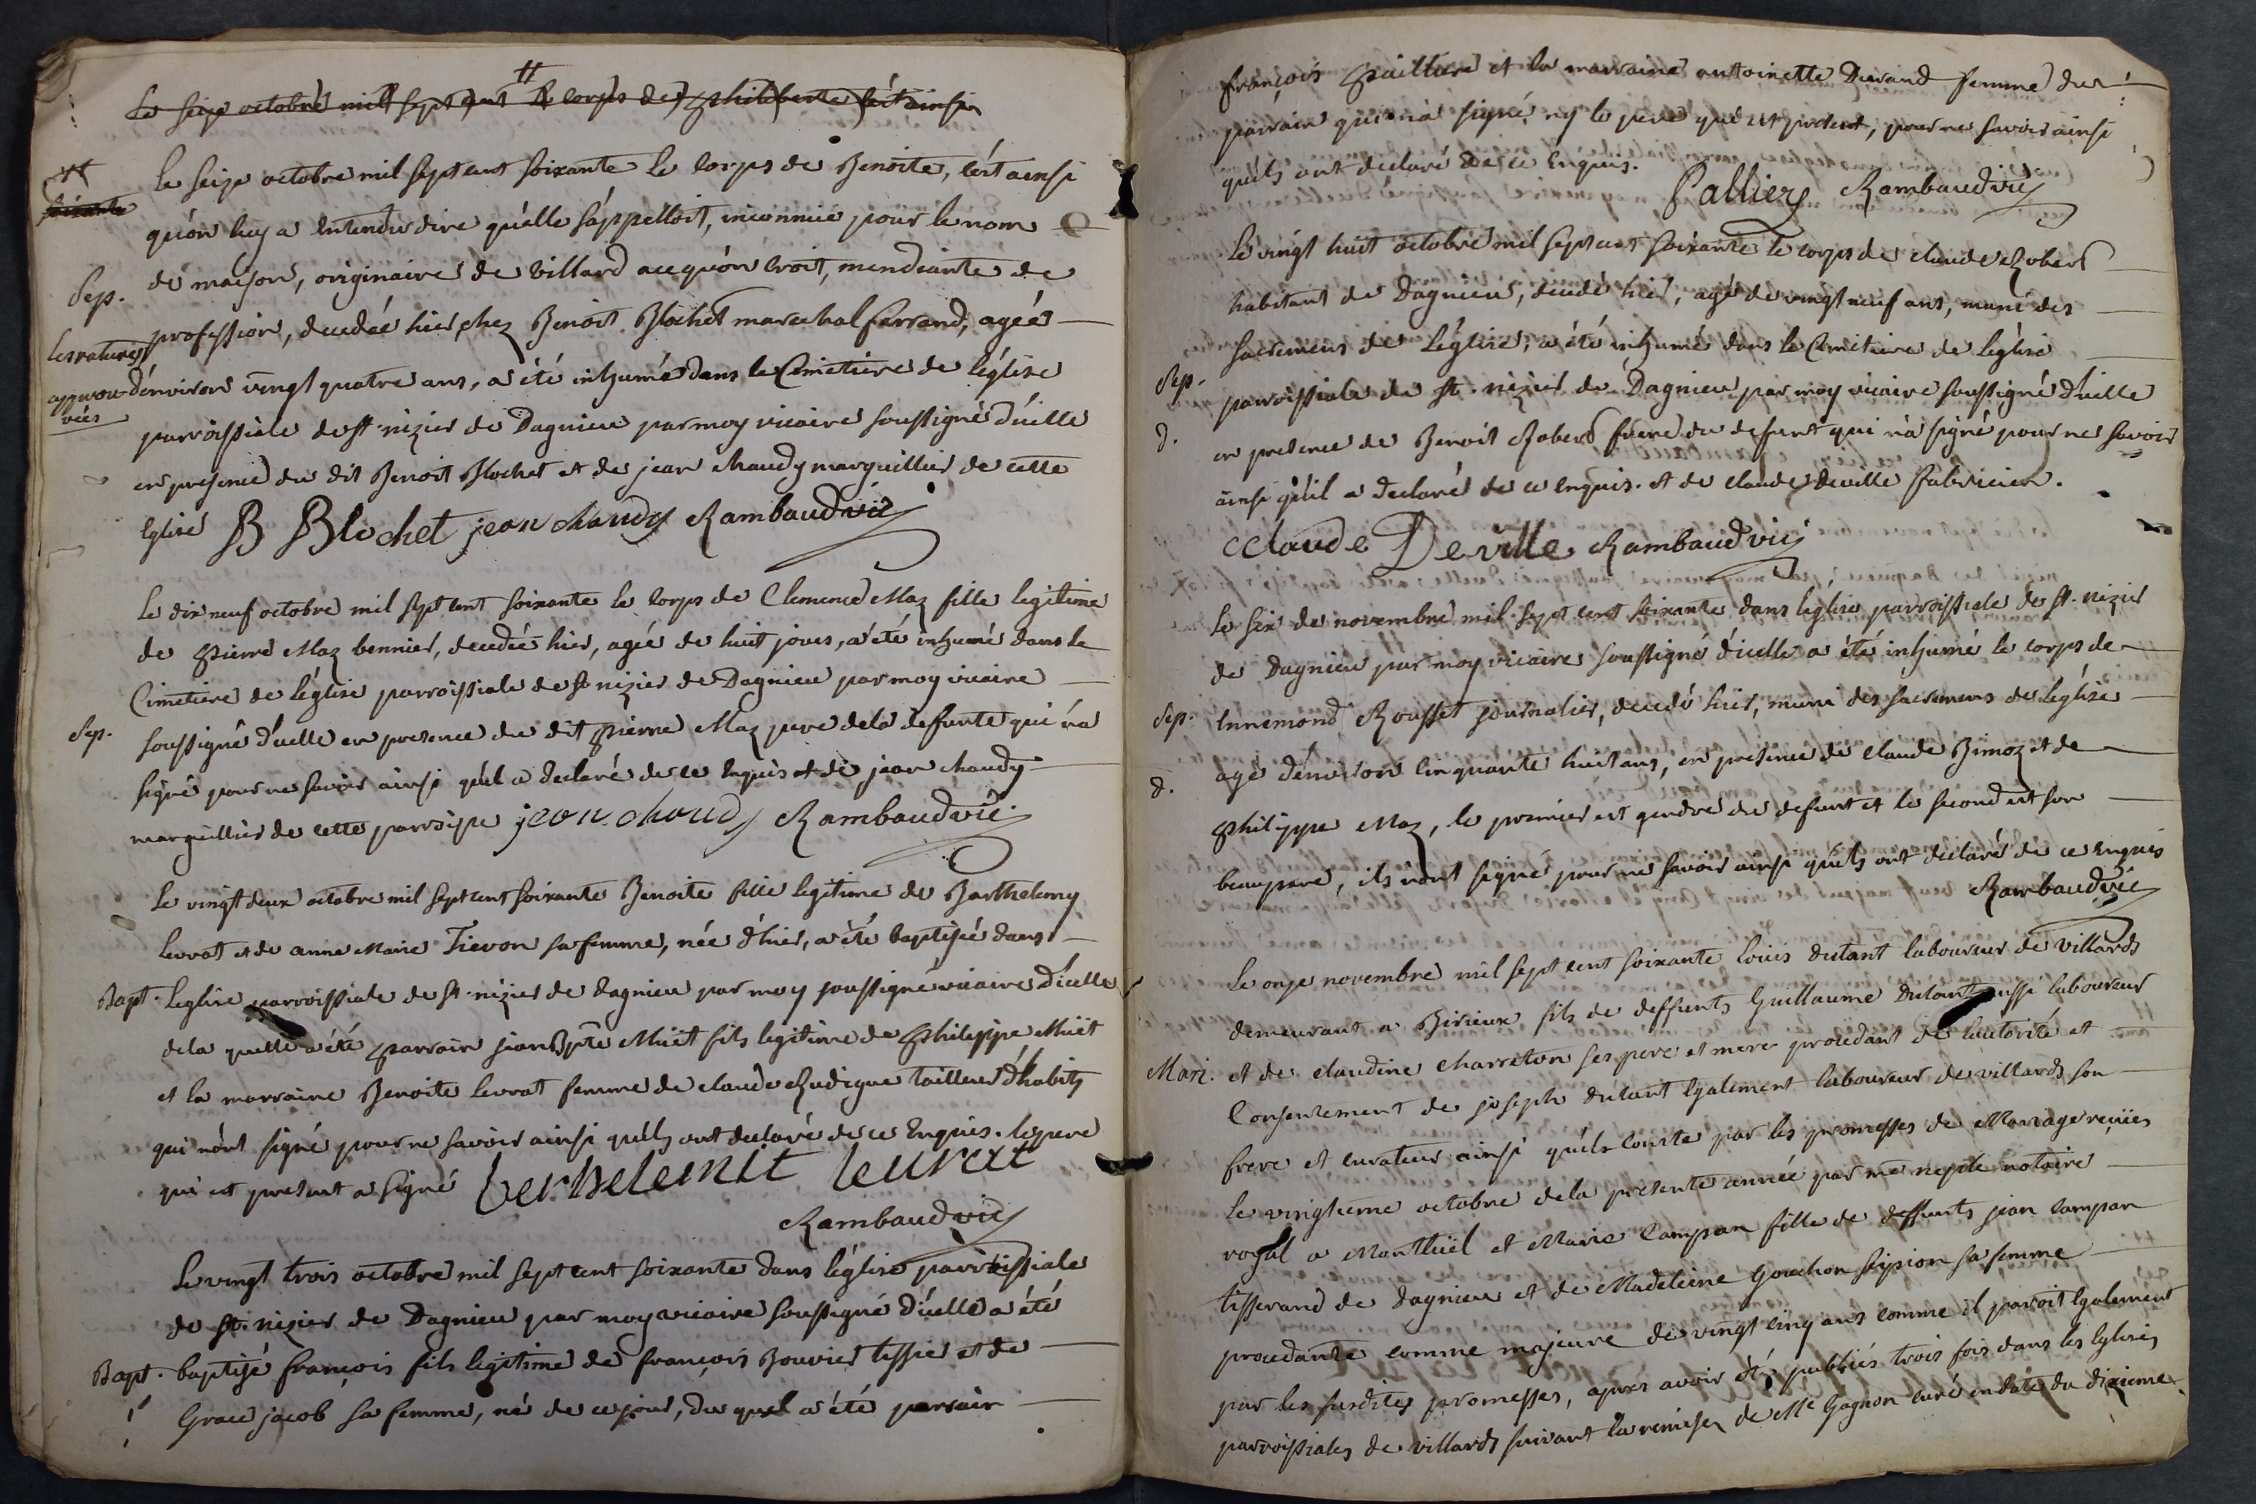 Le seize octobre mil sept cent le corps de philiberte c'ést ainsi
Le seize octobre mil sept cent soixante le corps de Benoite, c'ést ainsi
soixante
qu'ón luy a entendu dire qu'elle s'áppelloit, inconnüe pour le nom
Sep.
de maison, originaire de Villard a ce qu'ón croit, mendiante de
profession, decedée hier chez Benoit Blochet marechal ferrand, agée
les ratures
approu-
vées
d'énviron vingt quatre ans, a été inhumée dans le Cimetiere de l'église
parroissiale de st. nizier de Dagnieu par moy vicaire soussigné d'icelle
en presence du dit Benoit Blochet et de jean chaudy marguillier de cette
Eglise B Blochet jean chaudy Rambaud vic
Le dix neuf octobre mil sept cent soixante le corps de Clemence Maz fille legitime
de pierre Maz bennier, decedée hier, agée de huit jours, a été inhumé dans le
Cimetiere de l'église parroissiale de st nizier de Dagnieu par moy vicaire
Sep.
soussigné d'icelle en presence du dit pierre Maz pere de la defunte qui n'a
signé pour ne savoir ainsi qu'il a declaré de ce enquis et de jean chaudy
marguillier de cette parroisse jean chaudy Rambaud vic
Le vingt deux octobre mil sept cent soixante Benoite fille legitime de Barthelemy
levrat et de anne Marie Tievon sa femme, née d'hier, a été baptisée dans
Bapt. l'eglise parroissiale de st. nizier de dagnieu par moy soussigné vicaire d'icelle
de la quelle a été parrain jean Bpte Müet fils legitime de philippe Müet
et la marraine Benoite levrat femme de claude Rudigue tailleur d'habits
qui n'ont signé pour ne savoir ainsi qu'ils ont declaré de ce Enquis. le pere
qui est present a signé berthelemit leurat
Rambaud vic
Le vingt trois octobre mil sept cent soixante dans l'église parroissiale
de st. nizier de Dagnieu par moy vicaire soussigné d'icelle a été
Bapt. baptisé françois fils legitime de françois Bouvier tissier et de
Grace jacob sa femme, né de ce jour, du quel a été parrain
françois paillare et la marraine antoinette Durand femme du
parrain qui n'a signé, ny le pere qui est present, pour ne savoir ainsi
qu'ils ont declaré de ce Enquis.
Palliery Rambaud vic
Le vingt huit octobre mil sept cent soixante le corps de claude Robert
habitant de Dagnieu, decedé hier, agé de vingt neuf ans, muni des
sacremens de L'église, a été inhumé dans le Cimetiere de l'eglise
Sep.
parroissiale de st. nizier de Dagnieu par moy vicaire soussigné d'icelle
d.
en presence de Benoit Robert frere du defunt qui n'a signé pour ne savoir
ainsi qu'il a declaré de ce enquis. et de claude deville fabricien.
Claude Deville Rambaud vic
Le six de novembre mil sept cent soixante dans l'eglise parroissiale de st. nizier
de Dagnieu par moy vicaire soussigné d'icelle a été inhumé le corps de
Sep.
Ennemond Rousset journalier, decedé hier, muni des sacremens de l'eglise
d.
agé d'environ cinquante huit ans, en presence de claude Bimoz et de
philippe Maz, le premier est gendre du defunt et le second est son
beaupere, ils n'ont signé pour ne savoir ainsi qu'ils ont declaré de ce enquis
Rambaud vic
Le onze novembre mil sept cent soixante louis dutant laboureur de villards
demeurant a Birieux fils de deffunts Guillaume Dutant aussi laboureur
Mari. et de claudine charreton ses pere et mere procedant de l'autorité et
consentement de joseph dutant egalement laboureur de villards son
frere et curateur ainsi qu'il conste par les promesses de Mariage recües
le vingtieme octobre de la presente année par me neple notaire
royal a Montlüel et Marie Campan fille de deffunts jean campan
tisserand de dagnieu et de Madeleine Gouchon sipsion sa femme
procedante comme majeure de vingt cinq ans comme il paroit egalement
par les susdites promesses, apres avoir été publiés trois fois dans les Eglises
parroissiales de villards suivant la remise de Mre Gagnon curé en date du dixieme